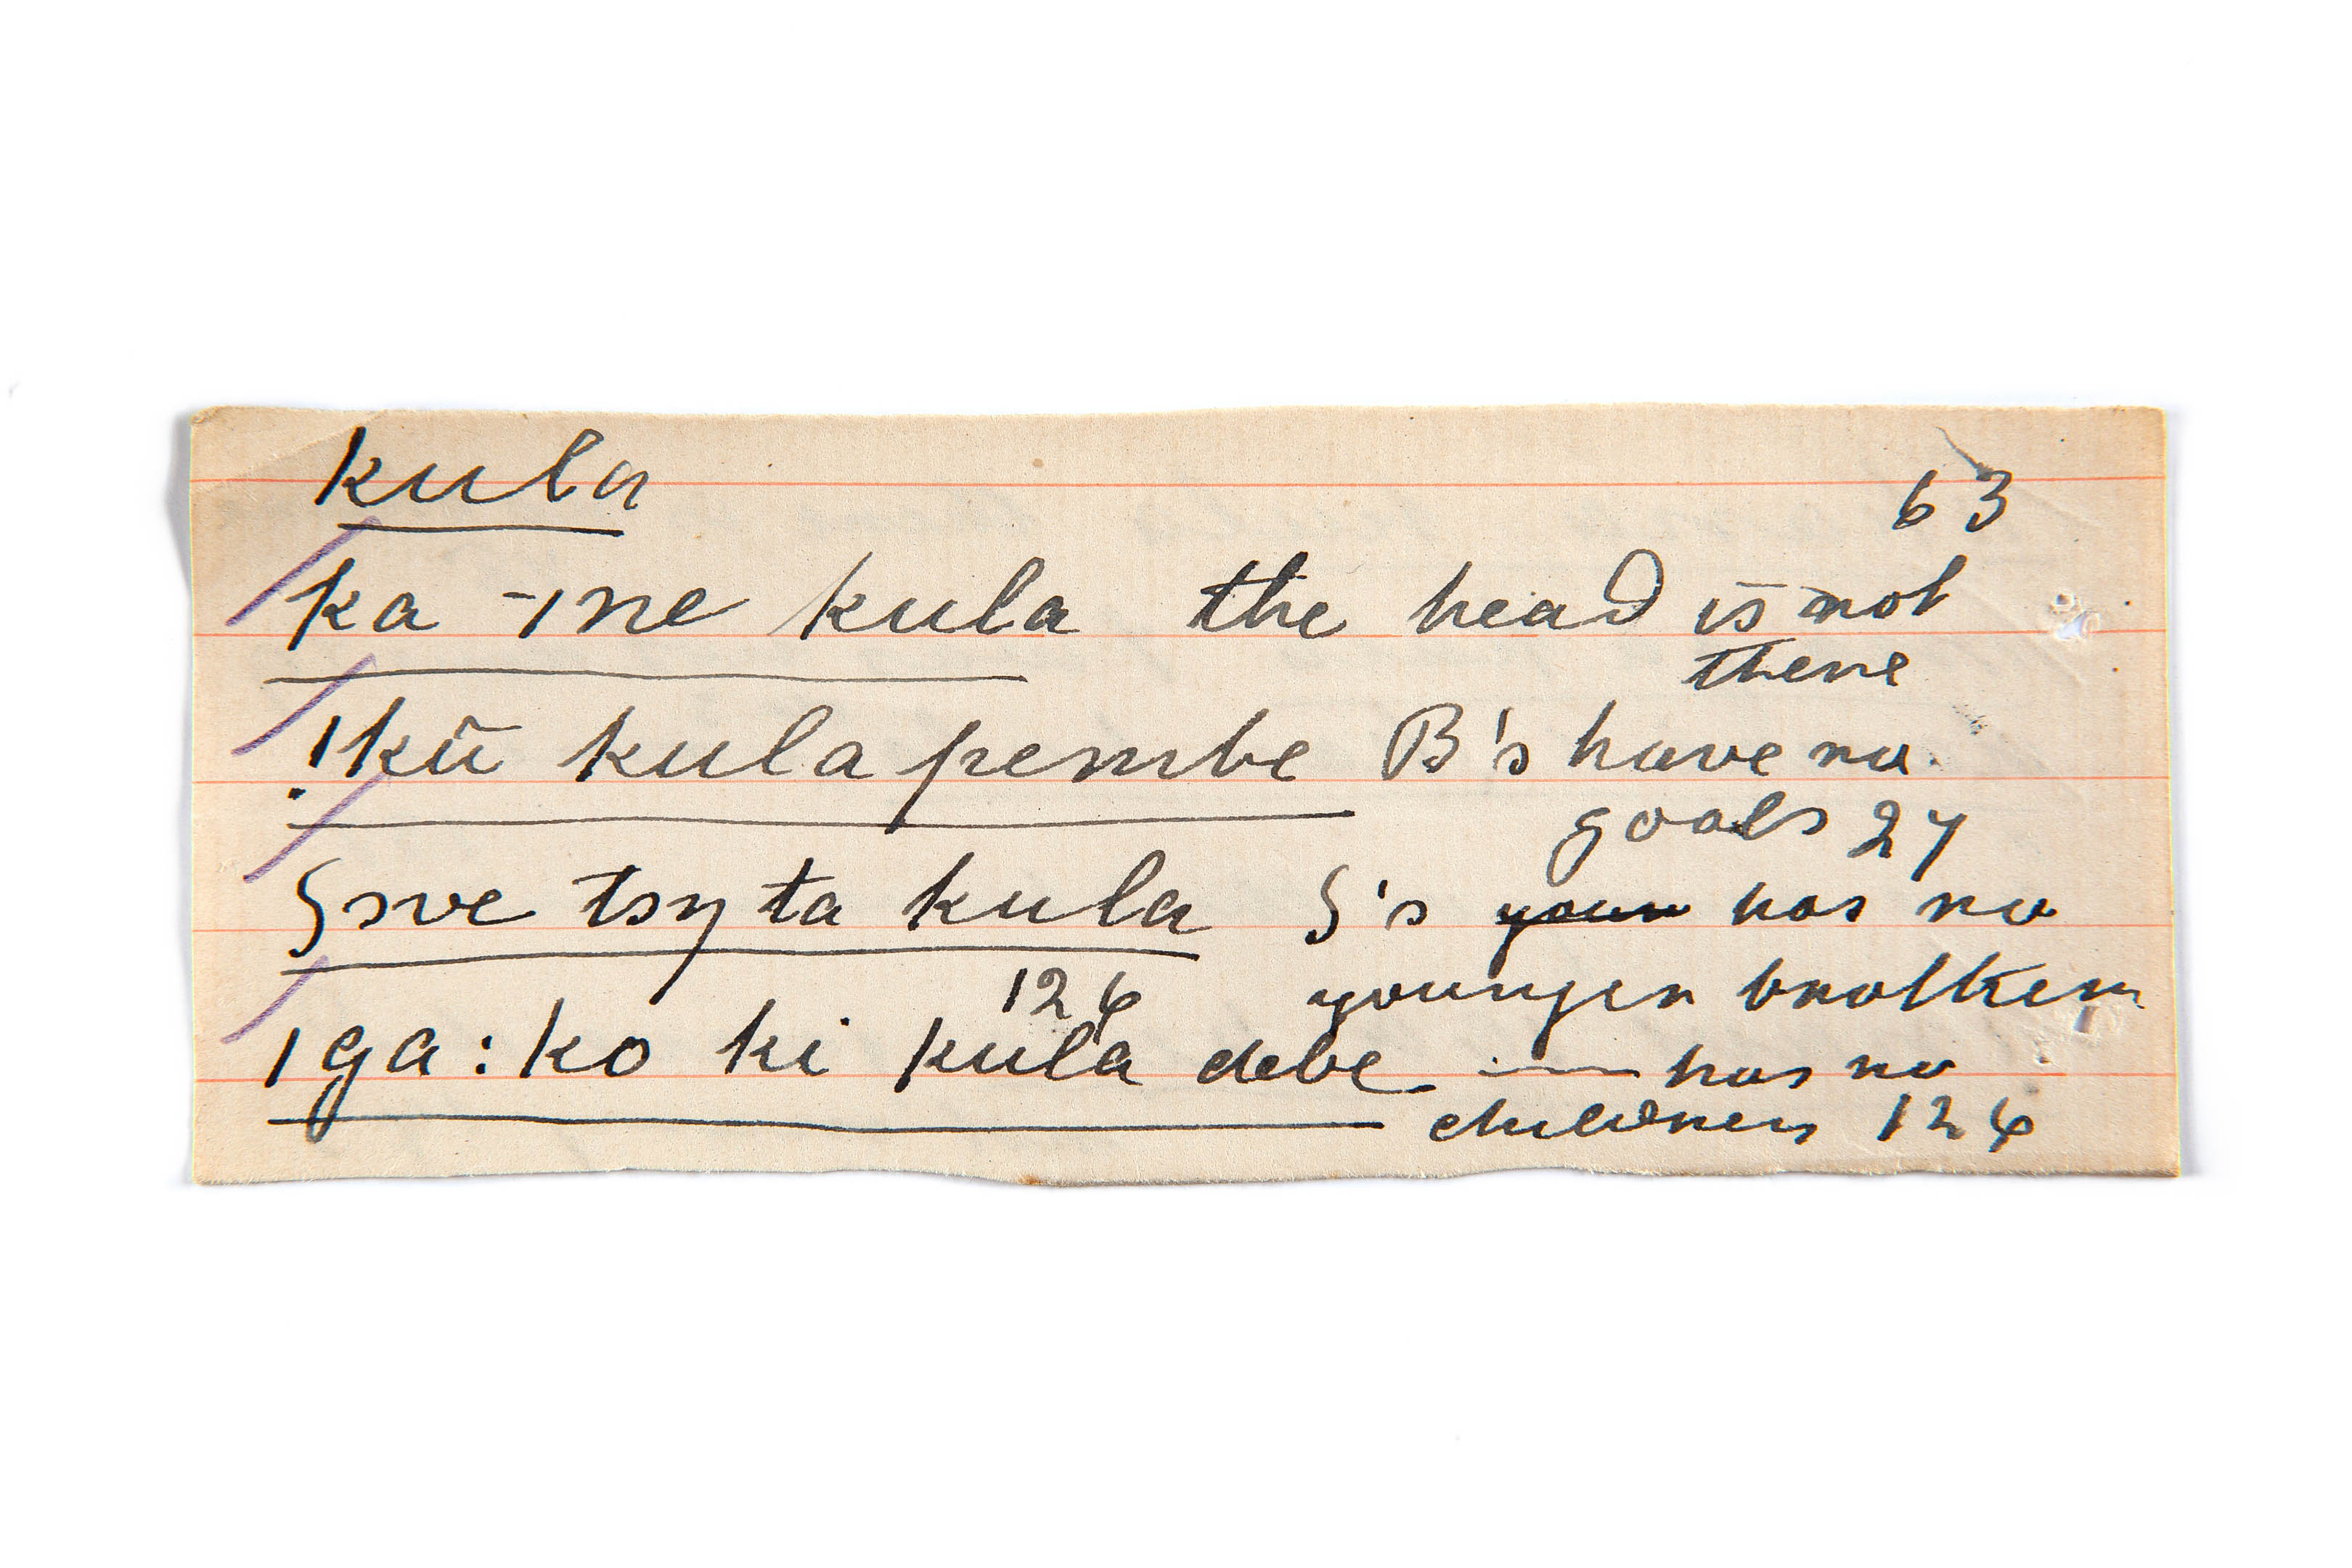 kula
63
ka -ɪne kula the head is not
there
!kũ kula pembe B's have no
goals 27
Ssve tsyta kula S's youn has no
126 younger brothers
ɪga:ko ki kula debe — has no
children 126